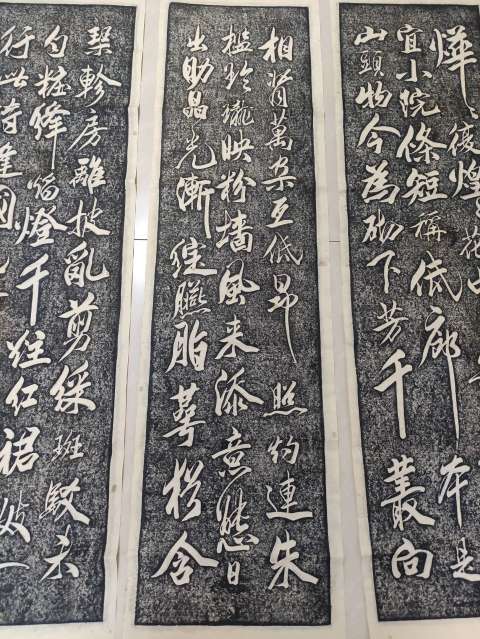 燁〻復煌〻花中
宜小院條短稱低廊本是
山頭物今為砌下芳千叢向
相背萬朵互低昂照灼連朱
檻玲瓏映粉墻風来添意態日
出助晶光漸綻臙脂萼猶含
琹軫房離披亂剪綵斑駁未
勻粧絳焰燈千炷紅裙妓一
行此時逢國